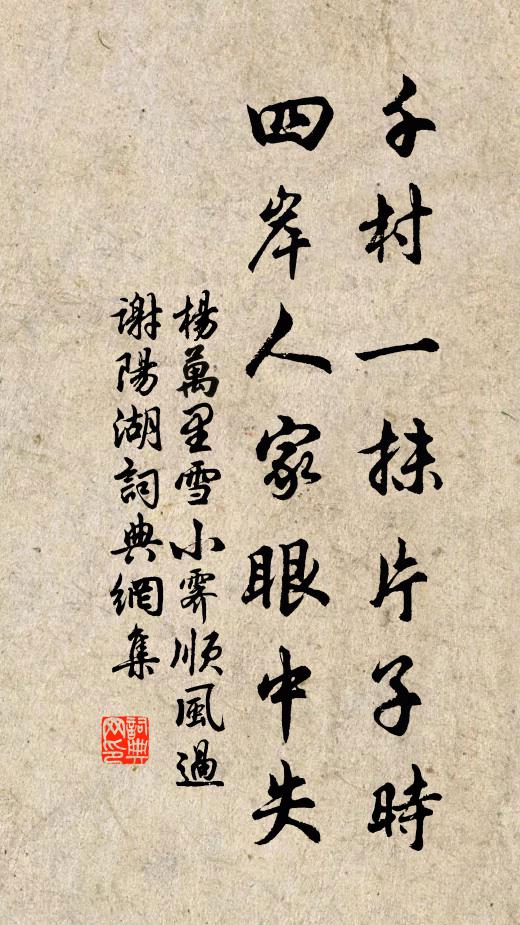 千村一抹片子時
四岸人家眼中失
楊萬里雪小霽順風過
謝陽湖詞典網集
詞典网印